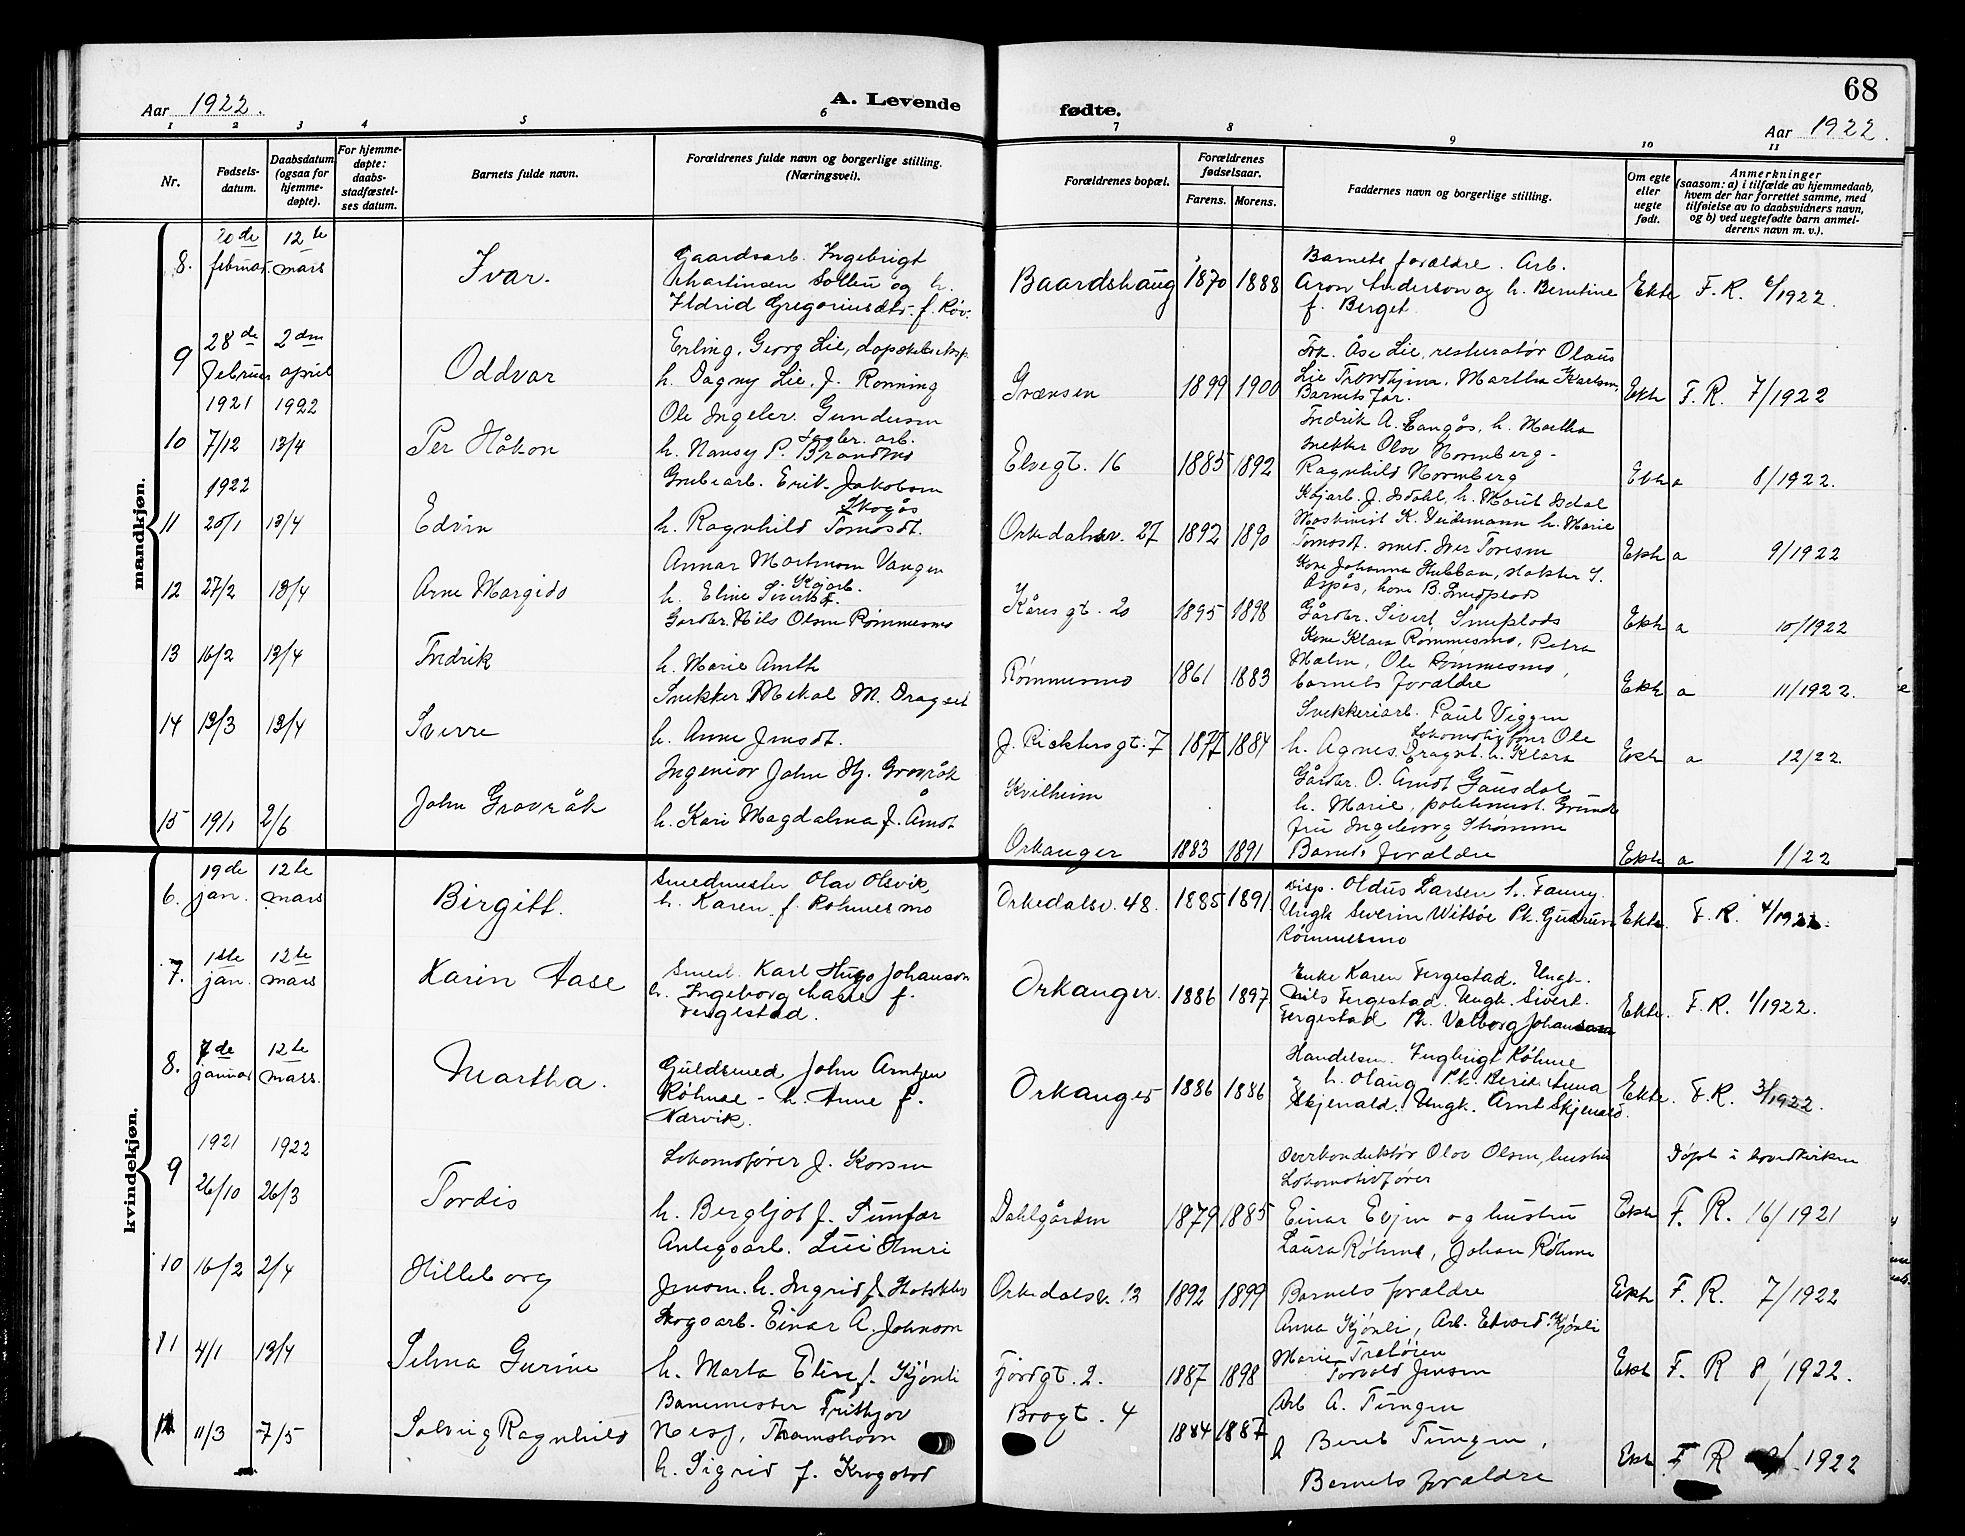 68
Aar 1922.
A. Levende
fødte.
Aar 1922.
1 2 3 4 5 6 7 8 9 10 11
Nr.
Fødsels-
datum.
Daabsdatum
(ogsaa for
hjemme-
døpte).
For hjemme-
døpte:
daabs-
stadfæstel-
ses datum.
Barnets fulde navn.
Forældrenes fulde navn og borgerlige stilling.
(Næringsvei).
Forældrenes bopæl.
Forældrenes
fødselsaar.
Farens. Morens.
Faddernes navn og borgerlige stilling.
Om egte
eller
uegte
født.
Anmerkninger
(saasom: a) i tilfælde av hjemmedaab,
hvem der har forrettet samme, med
tilføielse av to daabsvidners navn,
og b) ved uegtefødte barn anmel-
derens navn m. v.).
mandkjøn.
8. 20de februar. 12te mars
Ivar.
Gaardsarb. Ingebrigt
Martinsen Solbu og h.
Ildrid Gregoriusdtr. f. Röv.
Baardshaug 1870 1888
Barnets forældre. Arb.
Aron Anderson og h. Berntine
f. Berget.
Ekte F. R. 6/1922.
9 28de februar 2den april
Oddvar
Erling, Georg Lie,
h. Dagny Lie, f. Rönning
Grænsen 1899 1900
Frk. Åse Lie, restauratör Olaus
Lie Trondhjem, Martha Karlsen,
Barnets far.
Ekte F. R. 7/1922
1921 1922
10 7/12 13/4
Per Håkon
Ole Ingeler. Gundersen
h. Nansy P.
Elvegt. 16 1885 1892
Fredrik A. Langås, h. Martha
snekker Olov Normberg-
Ragnhild Normberg
Ekte a 8/1922.
1922
11 20/1 13/4
Edvin
Grubearb. Erik Jakobsen
Skogås
h. Ragnhild Tomasdt.
Orkedalsv. 27 1892 1890
h. Marit
Maskinist K. Veidemann h. Marie
Tomasdt. smed. Iver Toresen
Ekte a 9/1922
12 27/2 13/4
Arne Margido
Annar Martinsen Vangen
h. Eline Sivertsdt.
Kåres gt. 20 1895 1898
Kone Johanna Hubban,
Aspås, kone B. Snuplads
Gårdbr. Sivert Snuplads
Ekte a 10/1922
13 16/2 13/4
Fredrik
Gårdbr. Nils Olsen Römmesmo
h. Marie Arnth
Römmesmo 1861 1883
Kone Klara Rømmesmo, Petra
Malm, Ole Rømmesmo,
barnets forældre
Ekte a 11/1922.
14 13/3 13/4
Sverre
Snekker Mikal M. Dragset
h. Anne Jensdt.
J. Richters gt. 7 1877 1884
Snekkeriarb. Paul Viggen
Lokomotivfører Ole
h. Agnes. Dragset. h. Klara
Ekte a 12/22
15 19/1 2/6
John Grovråk
Ingeniør John Hj. Grovråk
h. Kari Magdalena f. Åmot
Kvilheim
Orkanger 1883 1891
Gårdbr. O. Amdt Gausdal
h. Marie, politimest. Grunde
fru Ingeborg Strømme
Barnets forældre
Ekte a 1/22
kvindekjøn.
6. 19de jan. 12te mars
Birgitt.
Smedmester Olav Olsvik
h. Karen f. Rohmesmo
Orkedalsv. 48. 1885 1891
Disp. Oldus Larsen h. Fanny.
Ungk. Severin Witsøe Pk. Gudrun
Römmesmo
Ekte. F. R. 4/1922.
7. 1ste jan. 12te mars
Karin Aase
Smed. Karl Hugo Johanson
h. Ingeborg Marie f.
Fergestad.
Orkanger. 1886 1897
Enke Karen Fergestad. Ungk.
Nils Fergestad. Ungk. Sivert.
Fergestad Pk. Valborg Johanson
Ekte. F. R. 1/1922.
8. 7de januar 12te mars.
Martha.
Guldsmed John Arntzen
Röhme - h. Anne f.
Narvik.
Orkanger 1886 1886
Handelsm. Ingbrigt Röhme
h. Olaug Pk. Berit Anna
Skjenald. Ungk. Arnt Skjenald.
Ekte. F. R. 3/1922.
1921 1922
9 26/10 26/3
Tordis
Lokomofører J. Korsen
h. Bergljot f. Sunfær
Dahlgården 1879 1885
Overkonduktör Olov Olsen, hustru
Lokomotivfører
Einar Evjen og hustru
Laura Røhme, Johan Røhme
Ekte Döpt i hovedkirken
F. R. 16/1921
10 16/2 2/4
Hilleborg
Anlegsarb. Lui Henri
Jensen. h. Ingrid f.
Orkedalsv. 13 1892 1899
Barnets forældre
Ekte F. R. 7/1922
11 4/1 13/4
Selma Gurine
Skogsarb. Einar A. Johnson
h. Marta Eline f. Kjönli
Fjordgt. 2. 1887 1898
Anna Kjönli, Arb. Edvard Kjönli
Marie Tralöien
Torvald Jensen
Ekte F. R 8/1922.
12 11/3 7/5
Solveig Ragnhild
Banemester Fritkjov
Næss, Thamshavn
h. Sigrid f. Krogstad
Brogt. 4 1884 1887
Arb A. Tungen
h Berit Tungen,
Barnets forældre
Ekte F R 9/1922